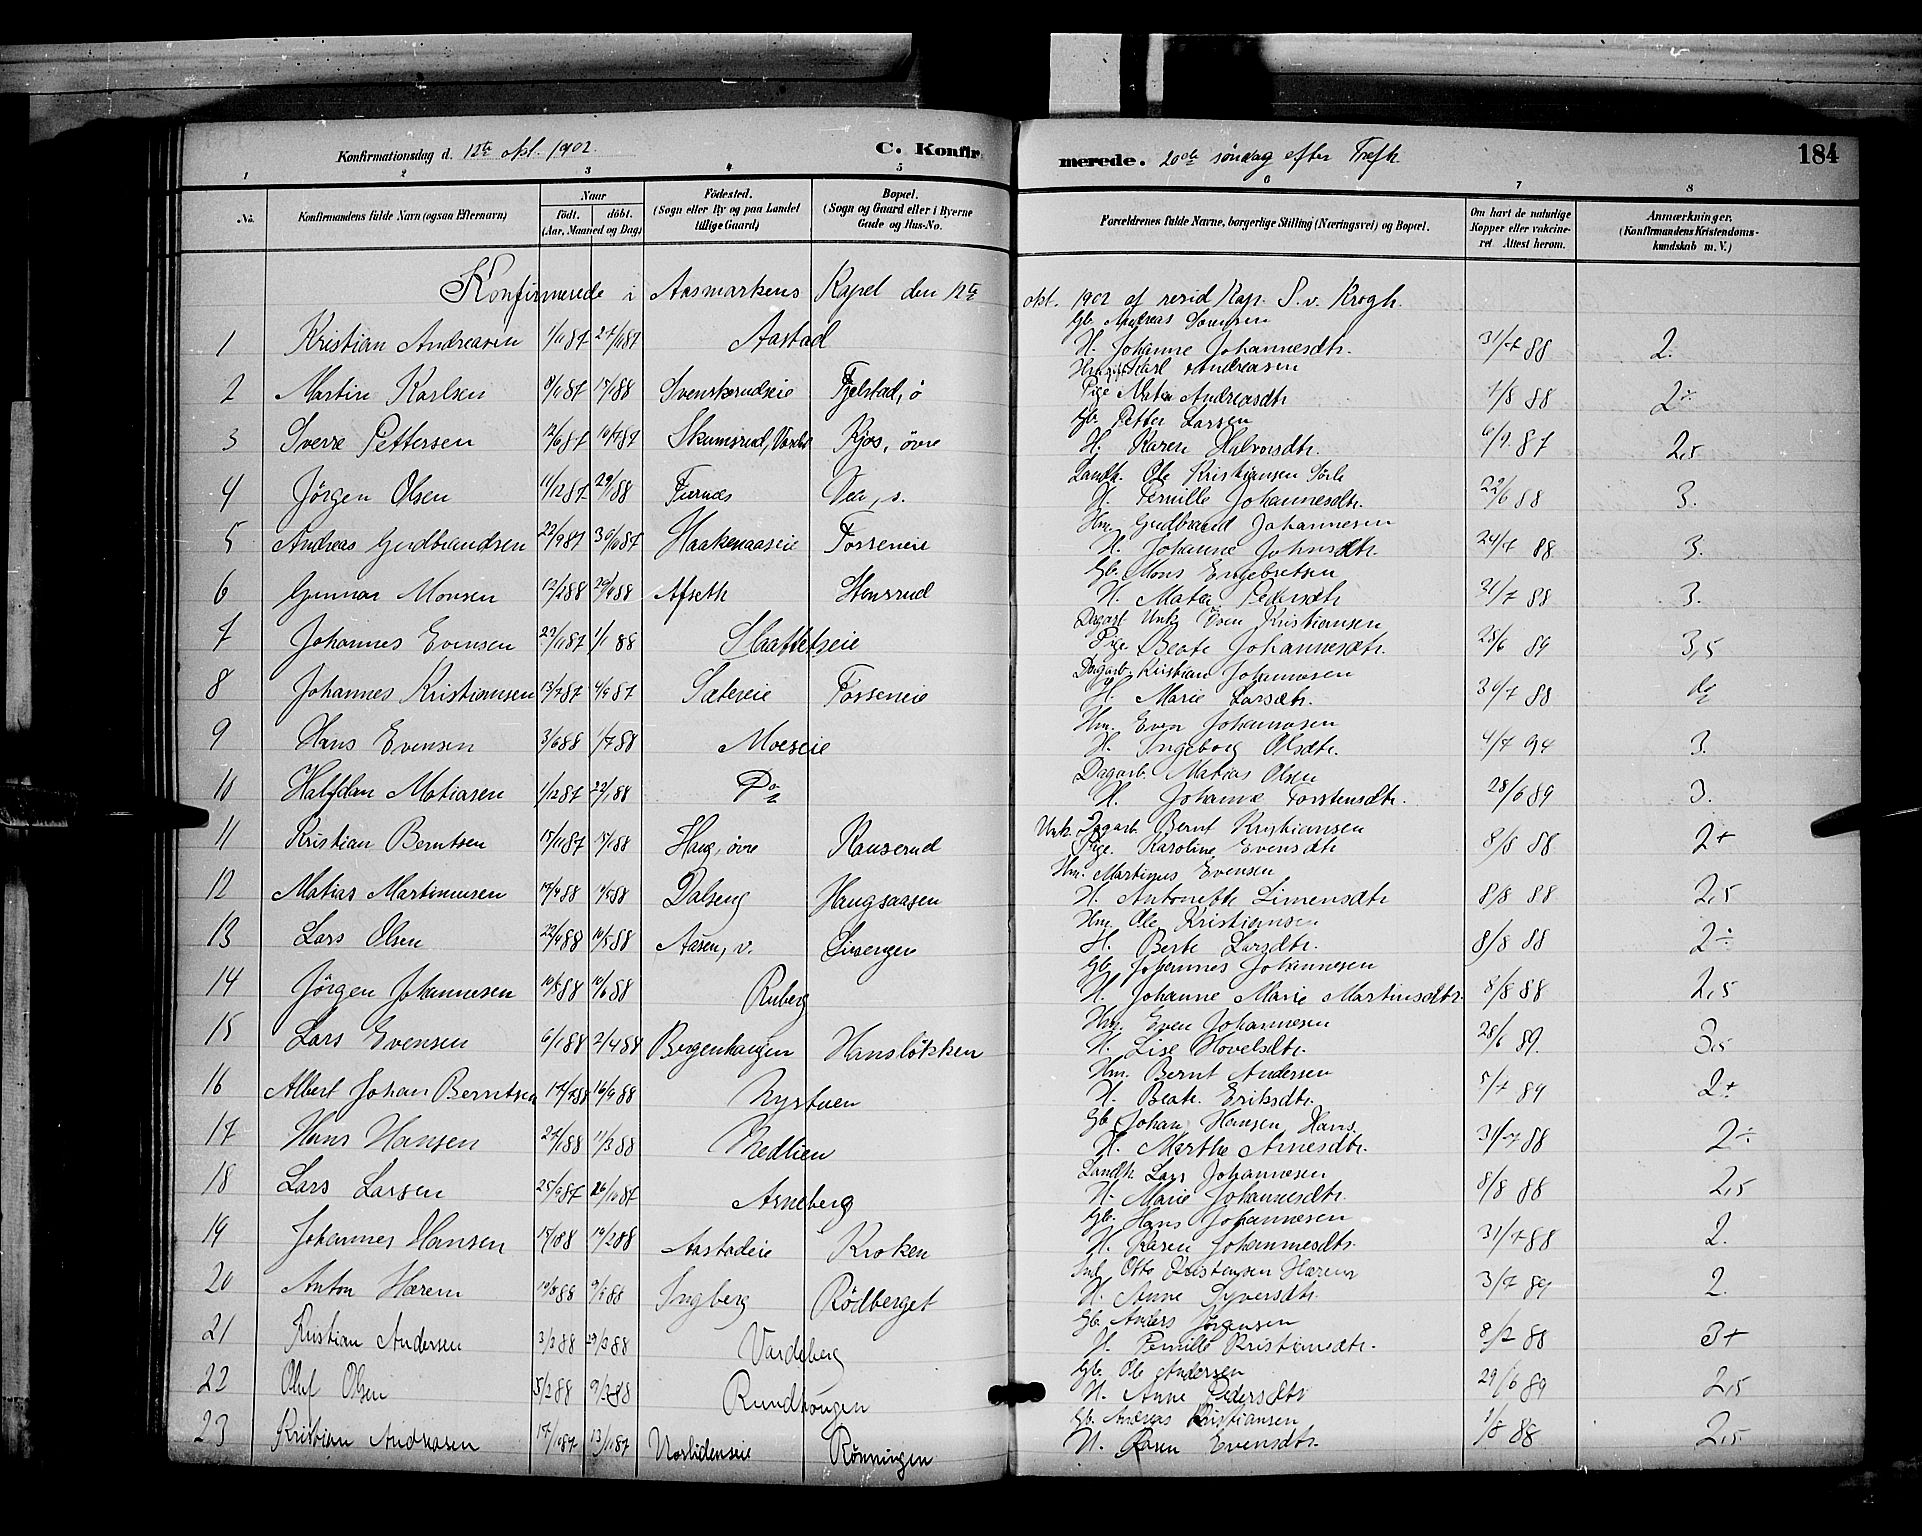 Konfirmationsdag d. 12te okt. 1902. C. Konfirmerede. 20de søndag efter Trefh. 184
1 2 3 4 5 6 7 8
No. Konfirmandens fulde Navn (ogsaa Efternavn) Naar født. døbt. (Aar, Maaned og Dag) Fødested. (Sogn eller By og paa Landet tillige Gaard) Bopæl. (Sogn og Gaard eller i Byerne Gade og Hus-No. Forældrenes fulde Navne, borgerlige Stilling (Næringsvei) og Bopæl. Om havt de naturlige Kopper eller vakcineret. Attest herom. Anmærkninger. (Konfirmandens Kristendomskundskab m. V.)
Konfirmerede i Aasmarkens Kapel den 12te okt. 1902 af resid Kap. S. v. Krogh.
Gb. Andreas Sørensen
1 Kristian Andreasen 1/11 87 27/11 87 Aastad H. Johanne Johannesdtr. 31/7 88 2.
Karl Andreasen
2 Martin Karlsen 8/11 87 15/1 88 Svenskerudseie Fjelstad, ö Pige Mathea Andreasdtr 1/8 88 2÷
Gb. Petter Larsen
3 Sverre Pettersen 12/6 87 10/7 87 Skumsrud, Kjos, övre H. Karen Halvorsdtr. 6/9 87 2,5
Landh. Ole Kristiansen
4 Jörgen Olsen 11/12 87 29/1 88 Furnes H. Pernille Johannesdtr. 22/6 88 3.
Hm. Gudbrand Johannesen
5 Andreas Gudbrandsen 22/9 87 30/10 87 Haakenaaseie Forseneie H. Johanne Johnsdtr. 24/7 88 3.
Gb. Mons Engebretsen
6 Gunnar Monsen 12/2 88 29/4 88 Afseth Stensrud H. Mathea Pedersdtr 31/7 88 3.
Dagarb. Unk. Even Kristiansen
7 Johannes Evensen 22/11 87 1/1 88 Slaattetseie Pige Beate Johannesdtr. 28/6 89 3,5
Dagarb. Kristian Johannesen
8 Johannes Kristiansen 13/7 87 4/9 87 Sætereie Forseneie H. Marie Larsdtr. 30/7 88
Hm. Even Johannesen
9 Hans Evensen 3/6 88 1/7 88 Moeseie H. Ingeborg Olsdtr. 4/7 94 3.
Dagarb. Matias Olsen
10 Halfdan Matiasen 1/12 87 22/1 88 Do H. Johanne Torstensdtr. 28/6 89 3.
Unk. Dagarb. Bernt Kristiansen
11 Kristian Berntsen 15/11 87 15/1 88 Haug, övre Rauserud Pige. Karoline Evensdtr 8/8 88 2+
Hm. Martinus Evensen
12 Matias Martinusen Dalseng Haugsaasen H. Antonette Simensdtr 8/8 88 2,5
Hm Ole Kristiansen
13 Lars Olsen 22/4 88 10/5 88 Aasen, v. H. Berte Larsdtr. 8/8 88 2÷
Gb. Johannes Johannesen
14 Jörgen Johannesen 10/5 88 10/6 88 Ruberg H. Johanne Marie Martinsdtr. 8/8 88 2,5
Hm. Even Johannesen
15 Lars Evensen 6/1 88 2/4 88 Bergenhaugen Hanslökken H. Lise Hovelsdtr. 28/6 89. 3,5
Hm. Bernt Andersen
16 Albert Johan Berntsen 17/7 88 16/9 88 Nystuen H. Beate Eriksdtr. 5/7 89 2+
Gb. Johan Hansen Hans.
17 Hans Hansen 27/1 88 11/3 88 Nedlien H. Marthe Arnesdtr. 31/7 88 2÷
Landh. Lars Johannesen
18 Lars Larsen 25/9 87 26/10 87 Arneberg H. Marie Johannesdtr. 8/8 88 2,5
Gb. Hans Johannesen
19 Johannes Hansen 15/1 88 19/2 88 Aastadeie Kroken H. Karen Johannesdtr. 31/7 88 2.
Otto Kristensen Hærem
20 Anton Hærem Ingberg Rödberget H. Anne Syversdtr. 3/7 89 2.
Gb. Anders Jörgensen
21 Kristian Andersen 3/3 88 29/3 88 Vardeberg H. Pernille Kristiansdtr. 8/2 88 3+
Gb. Ole Andersen
22 Oluf Olsen 5/2 88 9/3 88 Rundhaugen H. Anne Pedersdtr 29/6 89 2,5
Gb. Andreas Kristiansen
23 Kristian Andreasen 17/10 87 13/11 87 Norlidenseie Rönningen H. Karen Evensdtr. 1/8 88 2,5